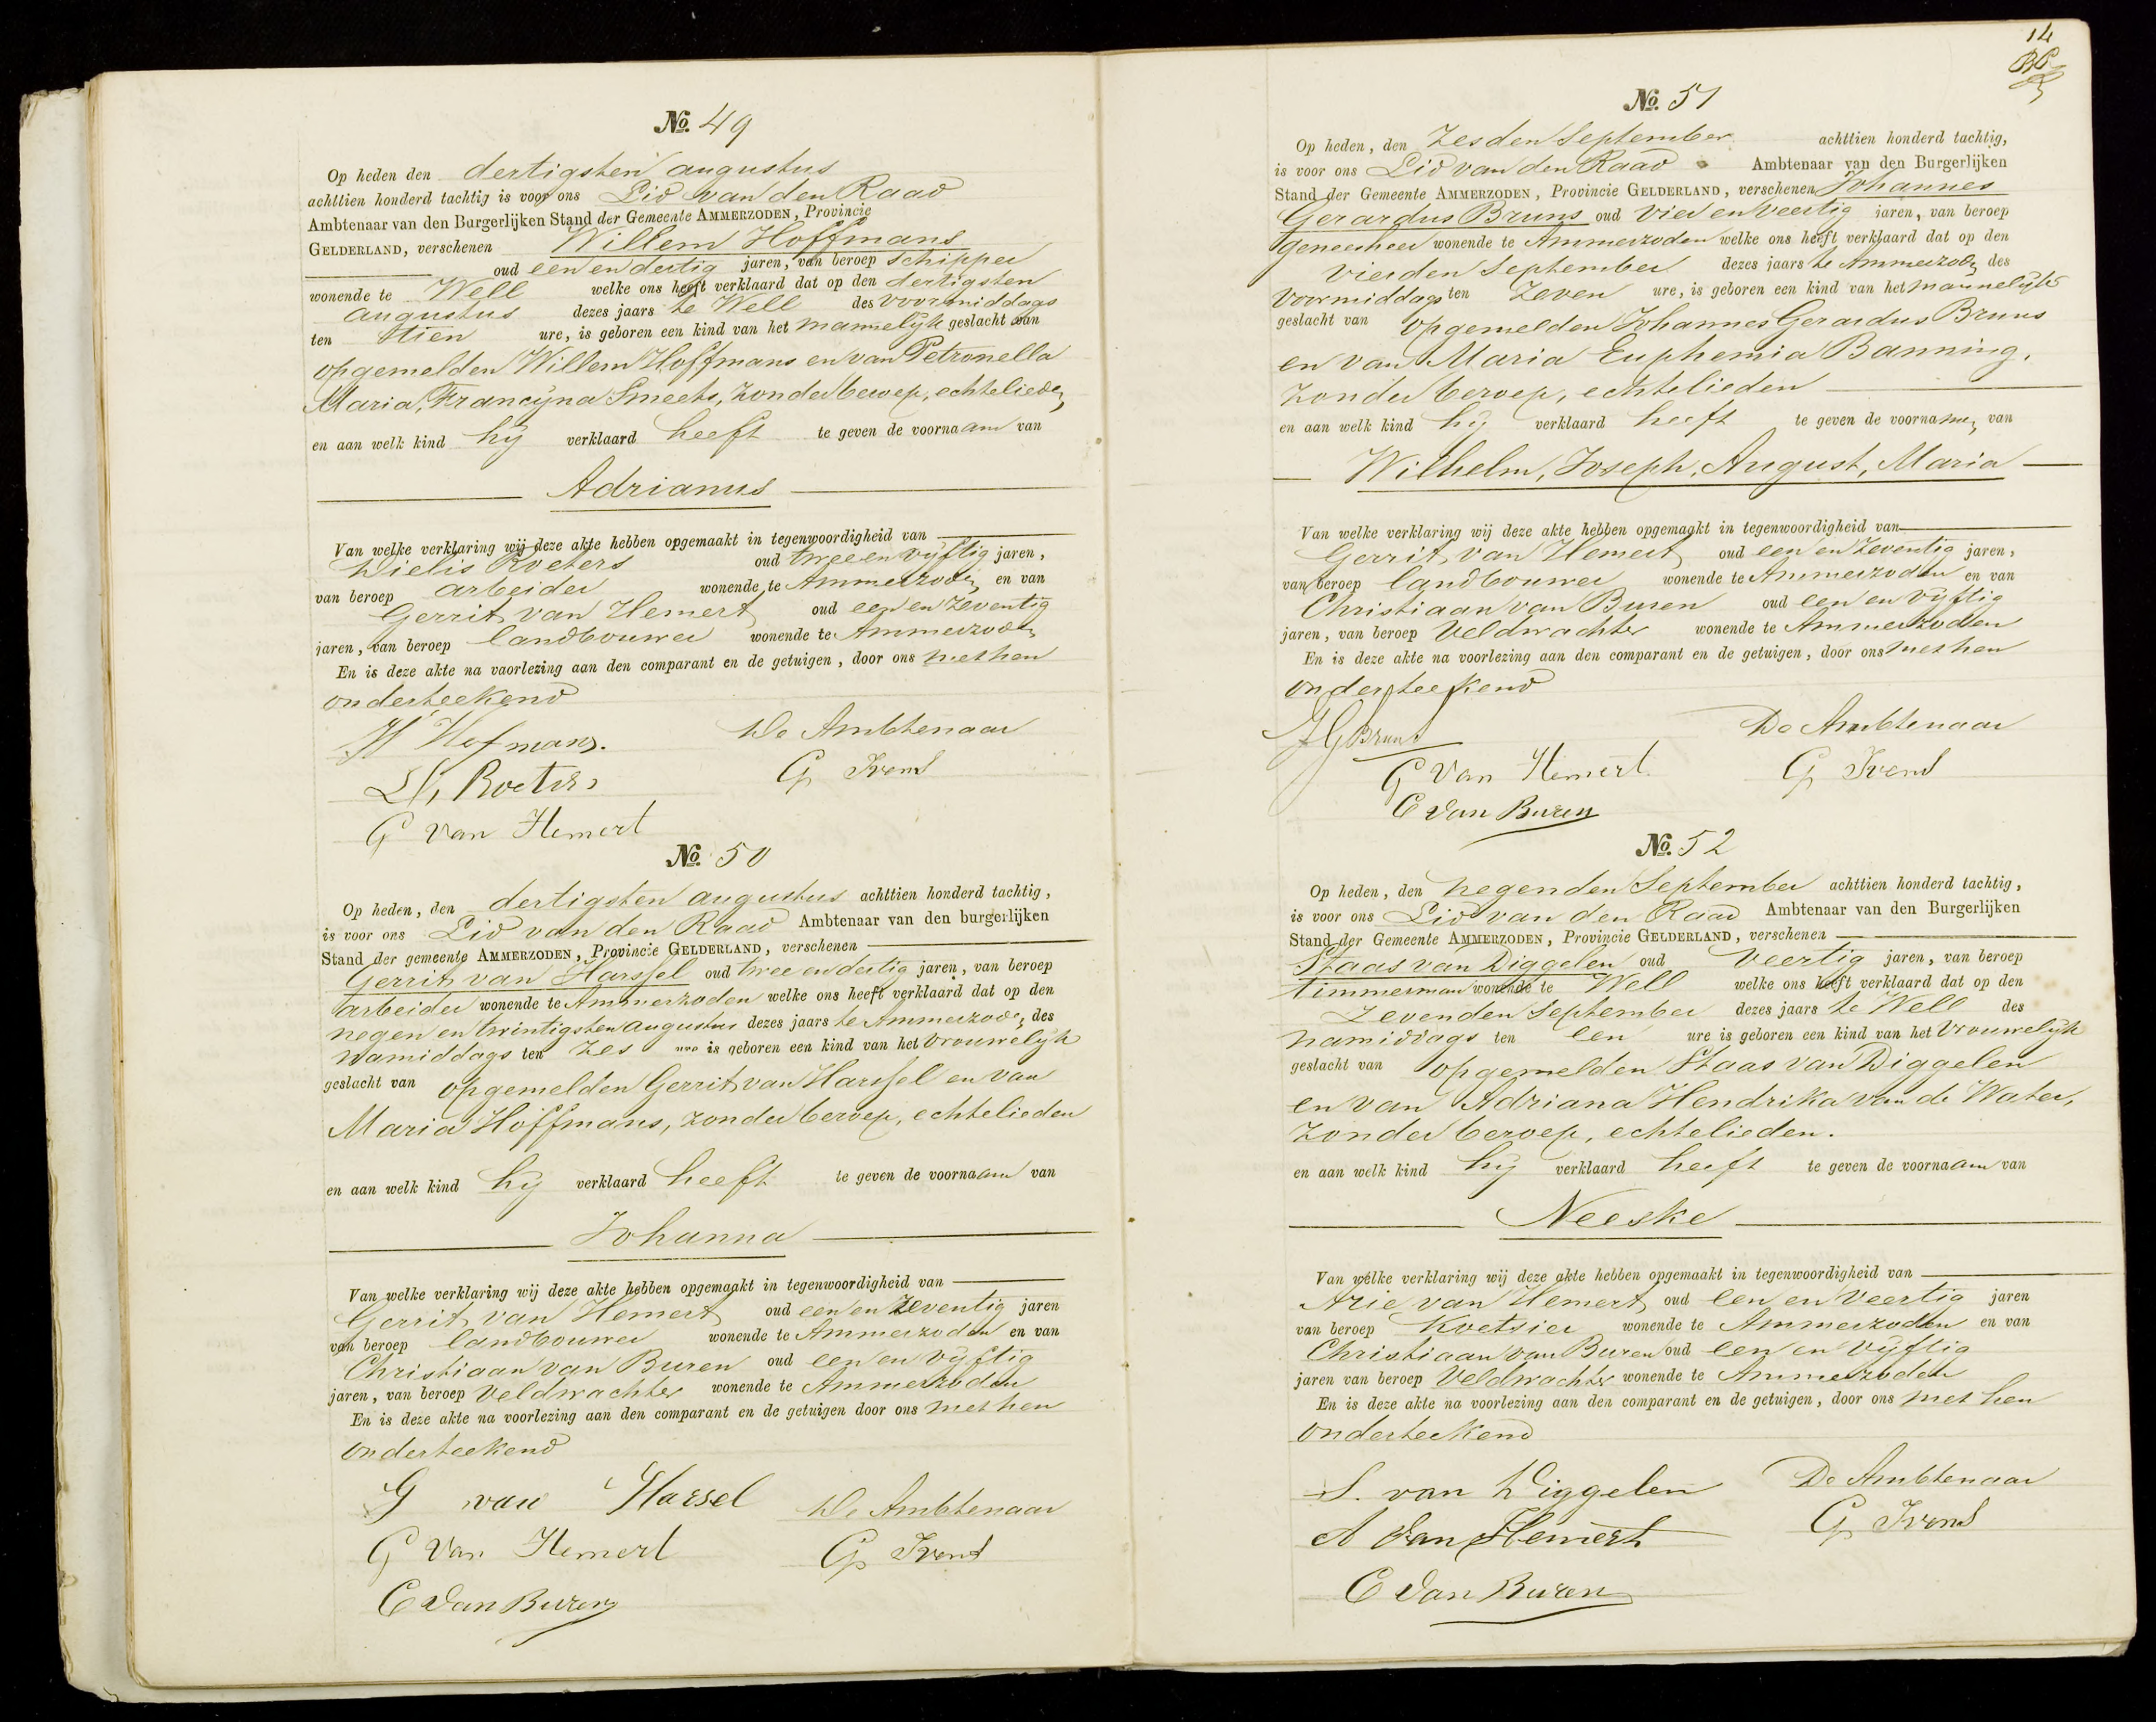 No. 49
Op heden den dertigsten augustus
achttien honderd tachtig is voor ons Lid van den Raad
Ambtenaar van den Burgerlijken Stand der Gemeente AMMERZODEN, Provincie
GELDERLAND, verschenen Willem Hoffmans
oud een en dertig jaren, van beroep schipper
wonende te Well welke ons heeft verklaard dat op den dertigsten
augustus dezes jaars te Well des voormiddags
ten tien ure, is geboren een kind van het mannelijk geslacht van
opgemelden Willem Hoffmans en van Petronella
Maria, Francijna Smeets, zonder beroep, echtelieden
en aan welk kind hij verklaard heeft te geven de voornaam van
Adrianus
Van welke verklaring wij deze akte hebben opgemaakt in tegenwoordigheid van
Dielis Roeters oud twee en vijftig jaren,
van beroep arbeider wonende te Ammerzoden en van
Gerrit van Hemert oud een en zeventig
jaren, van beroep landbouwer wonende te Ammerzoden
En is deze akte na vaorlezing aan den comparant en de getuigen, door ons met hen
onderteekend
W Hofmans. De Ambtenaar
D, Roeters G Ivens
G van Hemert
No. 50
Op heden, den dertigsten augustus achttien honderd tachtig,
is voor ons Lid van den Raad Ambtenaar van den burgerlijken
Stand der gemeente AMMERZODEN, Provincie GELDERLAND, verschenen
Gerrit van Harssel oud twee en dertig jaren, van beroep
arbeider wonende te Ammerzoden welke ons heeft verklaard dat op den
negen en twintigsten augustus dezes jaars te Ammerzoden des
namiddags ten zes ure is geboren een kind van het vrouwelijk
geslacht van opgemelden Gerrit van Harssel en van
Maria Hoffmans, zonder beroep, echtelieden
en aan welk kind hij verklaard heeft te geven de voornaam van
Johanna
Van welke verklaring wij deze akte hebben opgemaakt in tegenwoordigheid van
Gerrit van Hemert oud een en zeventig jaren
van beroep landbouwer wonende te Ammerzoden en van
Christiaan van Buren oud een en vijftig
jaren, van beroep veldwachter wonende te Ammerzoden
En is deze akte na voorlezing aan den comparant en de getuigen door ons met hen
onderteekend
G van Harsel De Ambtenaar
G van Hemert G Ivens
C van Buren
14
No. 51
Op heden, den zesden September achttien honderd tachtig,
is voor ons Lid van den Raad Ambtenaar van den Burgerlijken
Stand der Gemeente AMMERZODEN, Provincie GELDERLAND, verschenen Johannes
Gerardus Bruns oud vier en veertig jaren, van beroep
geneesheer wonende te Ammerzoden welke ons heeft verklaard dat op den
vierden September dezes jaars te Ammerzoden des
voormiddags ten zeven ure, is geboren een kind van het mannelijk
geslacht van opgemelden Johannes Gerardus Bruns
en van Maria Euphemia Banning,
zonder beroep, echtelieden
en aan welk kind hij verklaard heeft te geven de voornamen van
Wilhelm, Joseph, August, Maria
Van welke verklaring wij deze akte hebben opgemaakt in tegenwoordigheid van
Gerrit van Hemert oud een en zeventig jaren,
van beroep landbouwer wonende te Ammerzoden en van
Christiaan van Buren oud een en vijftig
jaren, van beroep veldwachter wonende te Ammerzoden
En is deze akte na voorlezing aan den comparant en de getuigen, door ons met hen
onderteekend
J G Bruns De Ambtenaar
G van Hemert G Ivens
C van Buren
No. 52
Op heden, den negenden September achttien honderd tachtig,
is voor ons Lid van den Raad Ambtenaar van den Burgerlijken
Stand der Gemeente AMMERZODEN, Provincie GELDERLAND, verschenen
Staas van Diggelen oud veertig jaren, van beroep
timmerman wonende te Well welke ons heeft verklaard dat op den
zevenden September dezes jaars te Well des
namiddags ten een ure is geboren een kind van het vrouwelijk
geslacht van opgemelden Staas van Diggelen
en van Adriana Hendrika van de Water,
zonder beroep, echtelieden.
en aan welk kind hij verklaard heeft te geven de voornaam van
Neeske
Van welke verklaring wij deze akte hebben opgemaakt in tegenwoordigheid van
Arie van Hemert oud een en veertig jaren
van beroep koetsier wonende te Ammerzoden en van
Christiaan van Buren oud een en vijftig
jaren van beroep veldwachter wonende te Ammerzoden
En is deze akte na voorlezing aan den comparant en de getuigen, door ons met hen
onderteekend
S. van Diggelen De Ambtenaar
A van Hemert G Ivens
C van Buren